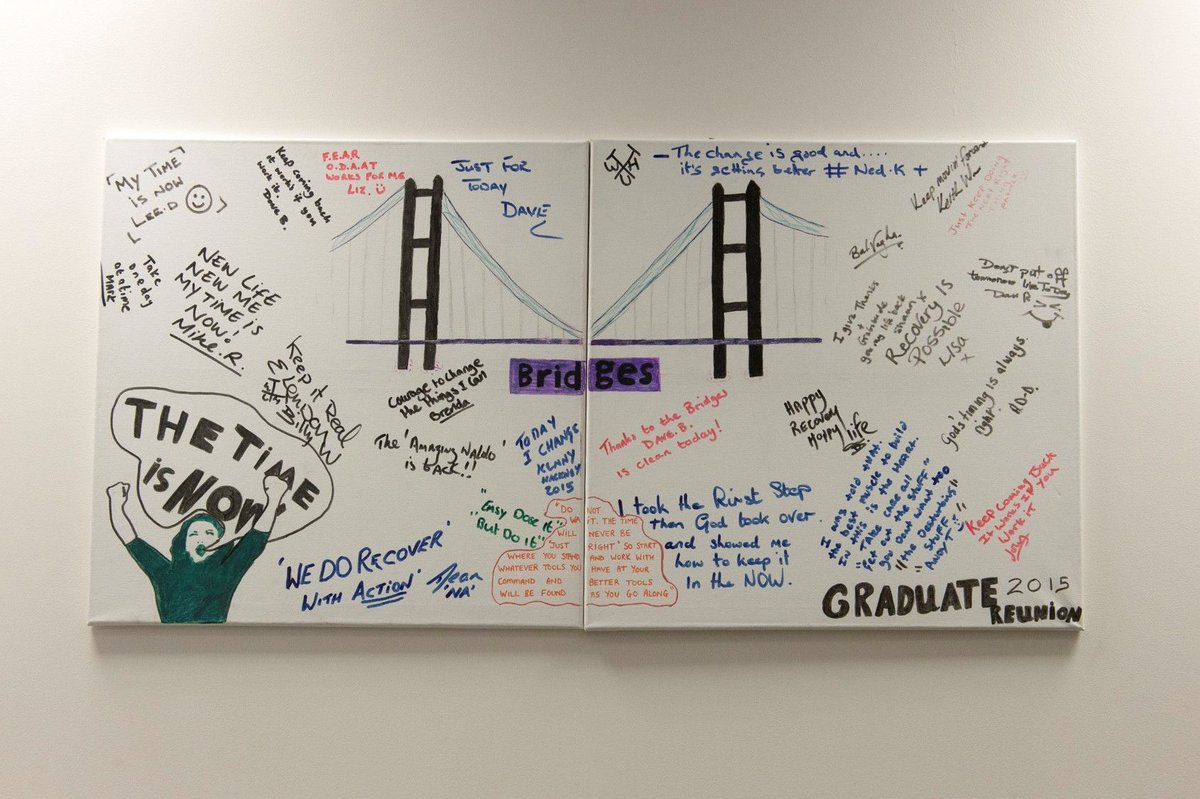 "MY TIME
IS NOW
LEE.D
Keep coming back
it works + you
work it
Dave B.
F.E.A.R
O.D.A.A.T
WORKS FOR ME
LIZ.
JUST FOR
TODAY
DAVE
Take
one day
at a time
MARK
NEW LIFE
NEW ME
MY TIME IS
NOW!
Mike.R.
Keep it Real
Billy
THE TIME
is NOW
Courage to change
the things I can
Brenda
The 'Amazing Naldo
is back!!
TODAY
I CHANGE
KENNY
HACKNEY
2015
"Easy Dose it"
"But Do it"
'WE DO RECOVER'
WITH ACTION'
'NA'
Bridges
"DO NOT
WAIT. THE TIME
WILL NEVER BE
'JUST RIGHT' SO START
WHERE YOU STAND AND WORK WITH
WHATEVER TOOLS YOU HAVE AT YOUR
COMMAND AND BETTER TOOLS
WILL BE FOUND AS YOU GO ALONG
- The change is good and....
it's getting better # Ned.K +
Keep movin' forward
Just Keep Doing
The next Right
Bal Vaghe.
Don't put off
tomorrow
I give Thanks
+
Gratitude
giving life back
Shaun x
Recovery is
Possible
Lisa
x
God's timing is always
right.
Thanks to the Bridges
DAVE.B.
is clean today!
HAPPY
RECOVERY
HAPPY life
I took the First Step
then God took over
and showed me
how to keep it
in the NOW.
I was told that..
the best muscle to build
in this is the HEART.
"Take care all
of the stuff"
"the Overburdening"
Stuff.
Andy T
Keep Coming Back
It Works If You
Work It
GRADUATE 2015
REUNION